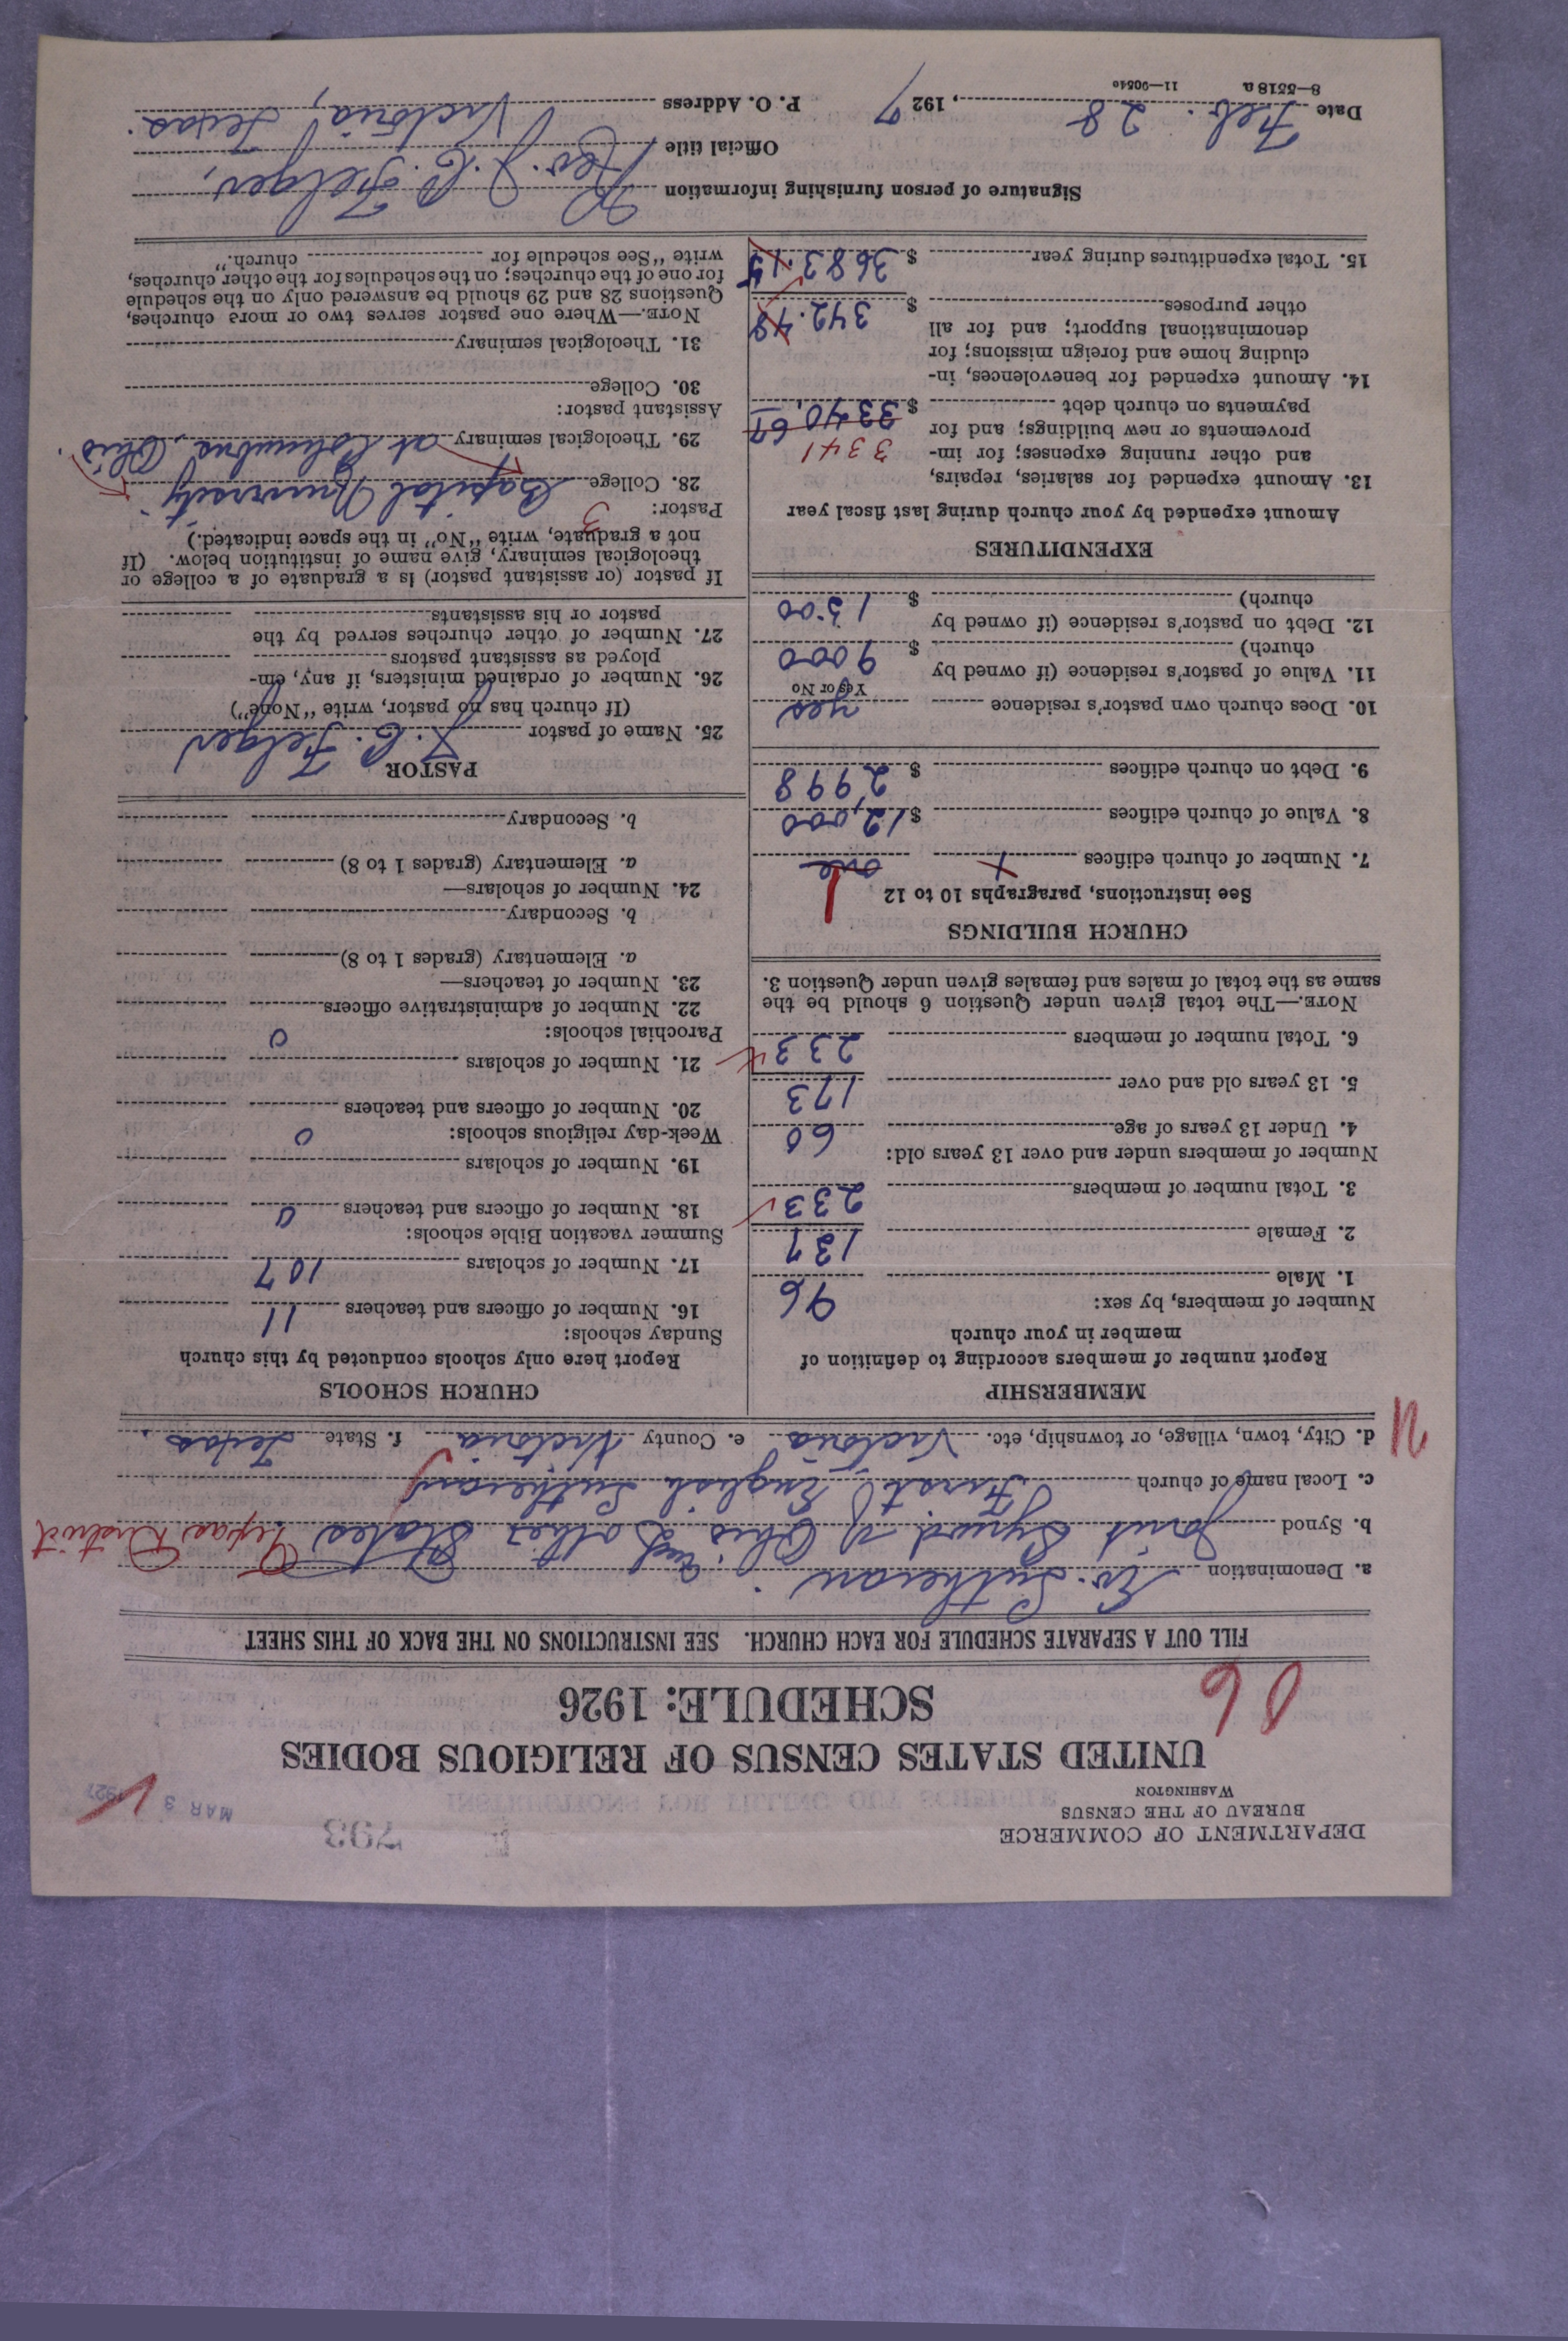 DEPARTMENT OF COMMERCE
BUREAU OF THE CENSUS
WASHINGTON
793
MAR 3 1927
UNITED STATES CENSUS OF RELIGIOUS BODIES
SCHEDULE: 1926
FILL OUT A SEPARATE SCHEDULE FOR EACH CHURCH. SEE INSTRUCTIONS ON THE BACK OF THIS SHEET
a. Denomination Ev. Lutheran.
b. Synod Joint Synod of Ohio and other States Texas District
c. Local name of church First English Lutheran
d. City, town, village, or township, etc. Victoria e. County Victoria f. State Texas.
MEMBERSHIP
Report number of members according to definition of
member in your church
Number of members, by sex:
1. Male 96
2. Female 137
3. Total number of members 233
Number of members under and over 13 years old:
4. Under 13 years of age 60
5. 13 years old and over 173
6. Total number of members 233
NOTE.—The total given under Question 6 should be the
same as the total of males and females given under Question 3.
CHURCH BUILDINGS
See instructions, paragraphs 10 to 12
7. Number of church edifices one 1
8. Value of church edifices $ 12,000
9. Debt on church edifices $ 2998
10. Does church own pastor's residence yes
Yes or No
11. Value of pastor's residence (if owned by
church) $ 9000
12. Debt on pastor's residence (if owned by
church) $ 1500
EXPENDITURES
Amount expended by your church during last fiscal year
13. Amount expended for salaries, repairs,
and other running expenses; for im-
provements or new buildings; and for
payments on church debt $ 3340.67
3341
14. Amount expended for benevolences, in-
cluding home and foreign missions; for
denominational support; and for all
other purposes $ 342.48
15. Total expenditures during year $ 3683.15
CHURCH SCHOOLS
Report here only schools conducted by this church
Sunday schools:
16. Number of officers and teachers 11
17. Number of scholars 107
Summer vacation Bible schools:
18. Number of officers and teachers 0
19. Number of scholars
Week-day religious schools: 0
20. Number of officers and teachers
21. Number of scholars
Parochial schools: 0
22. Number of administrative officers
23. Number of teachers—
a. Elementary (grades 1 to 8)
b. Secondary
24. Number of scholars—
a. Elementary (grades 1 to 8)
b. Secondary
PASTOR
25. Name of pastor
(If church has no pastor, write "None")
26. Number of ordained ministers, if any, em-
ployed as assistant pastors
27. Number of other churches served by the
pastor or his assistants
If pastor (or assistant pastor) is a graduate of a college or
theological seminary, give name of institution below. (If
not a graduate, write "No" in the space indicated.)
Pastor: 3
28. College Capital University
29. Theological seminary at Columbus, Ohio.
Assistant pastor:
30. College
31. Theological seminary
NOTE.—Where one pastor serves two or more churches,
Questions 28 and 29 should be answered only on the schedule
for one of the churches; on the schedules for the other churches,
write "See schedule for church."
Signature of person furnishing information Rev.
Official title
Date Feb. 28, 1927 P. O. Address Victoria, Texas.
8—5518 a 11—9054